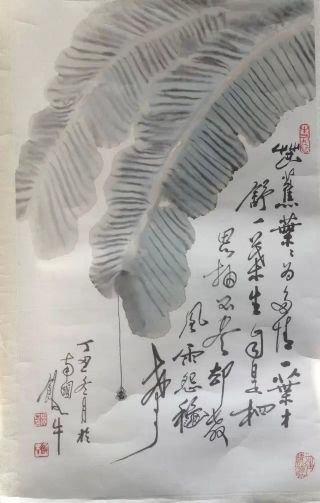 芭蕉葉々为多情一葉才
舒一葉生自是相
思抽不尽却教
風雨怨穐
声
丁丑冬月於
南國
牛